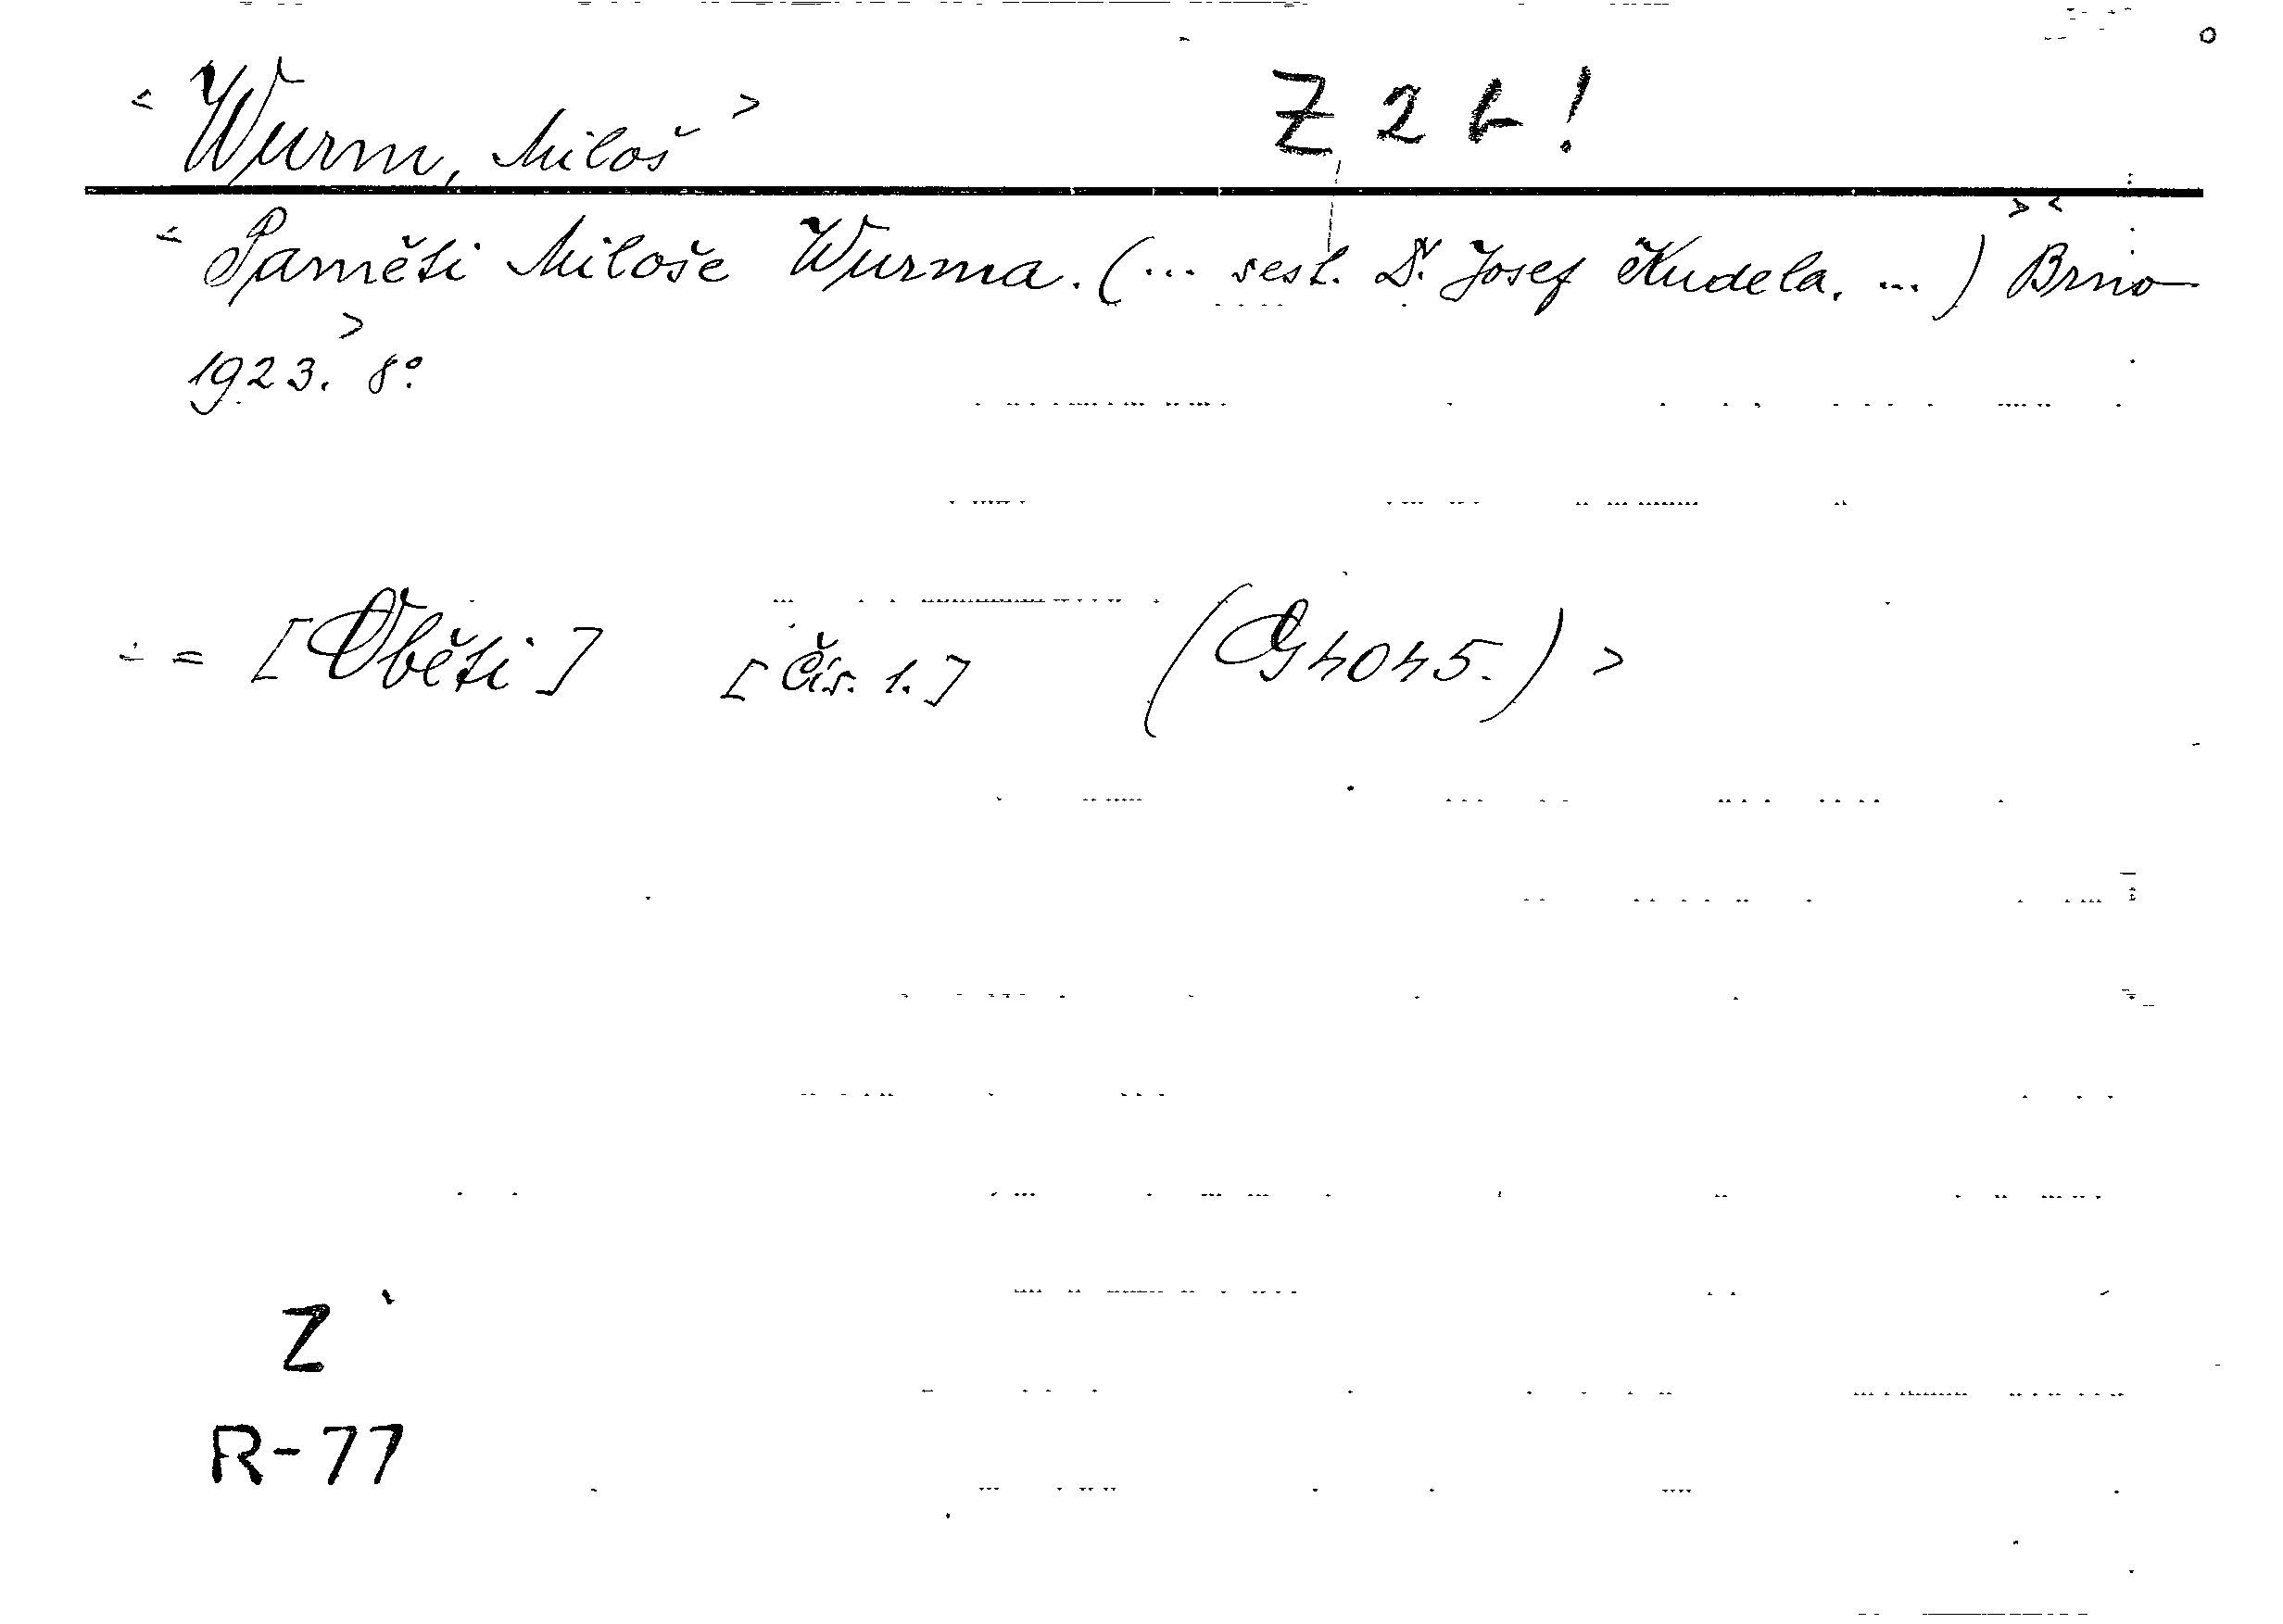 < Wurm, Miloš > Z 2 b !
< Paměti Miloše Wurma. (... sest. Dr. Josef Kudela, ...) > < Brno
1923. > 8°.
÷ = [Oběti] [Čís. 1.] (G 4045.) >
Z
R-77